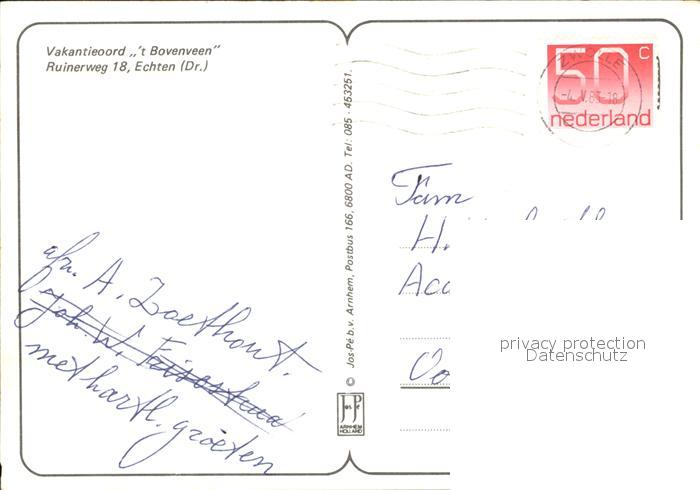 Vakantieoord „'t Bovenveen"
Ruinerweg 18, Echten (Dr.)
afz. A. Zoethout.
Joh. W.
met hartl. groeten
© Jos-Pé b.v. Arnhem, Postbus 166, 6800 AD. Tel: 085 - 453251.
Jos Pé
ARNHEM
HOLLAND
ZWOLLE
-4.V.83-18
50 c
nederland
Fam
H.
Acc
Oo
privacy protection
Datenschutz